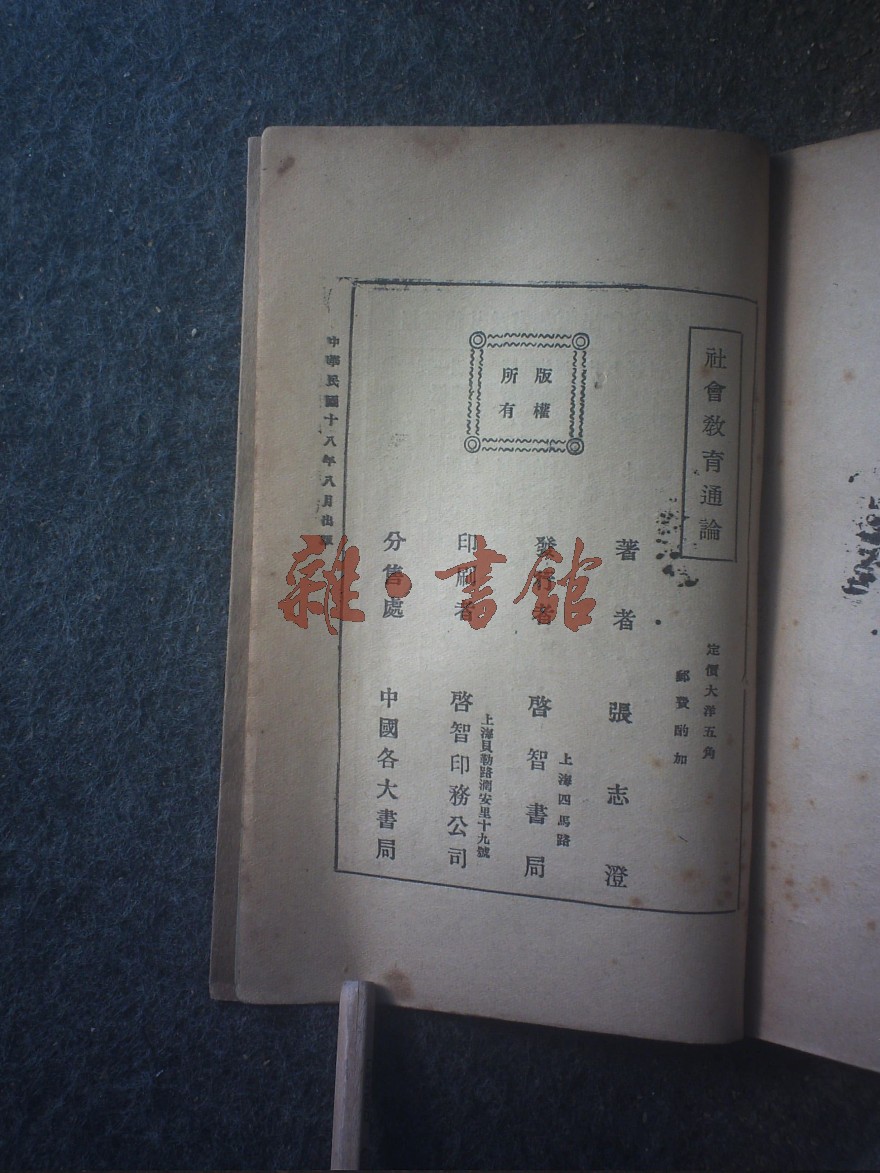 社會敎育通論
定價大洋五角
郵費酌加
著者 張志澄
發行者 上海四馬路 啓智書局
印刷者 上海貝勒路潤安里十九號 啓智印務公司
分售處 中國各大書局
版權
所有
中華民國十八年八月出版
雜·書館